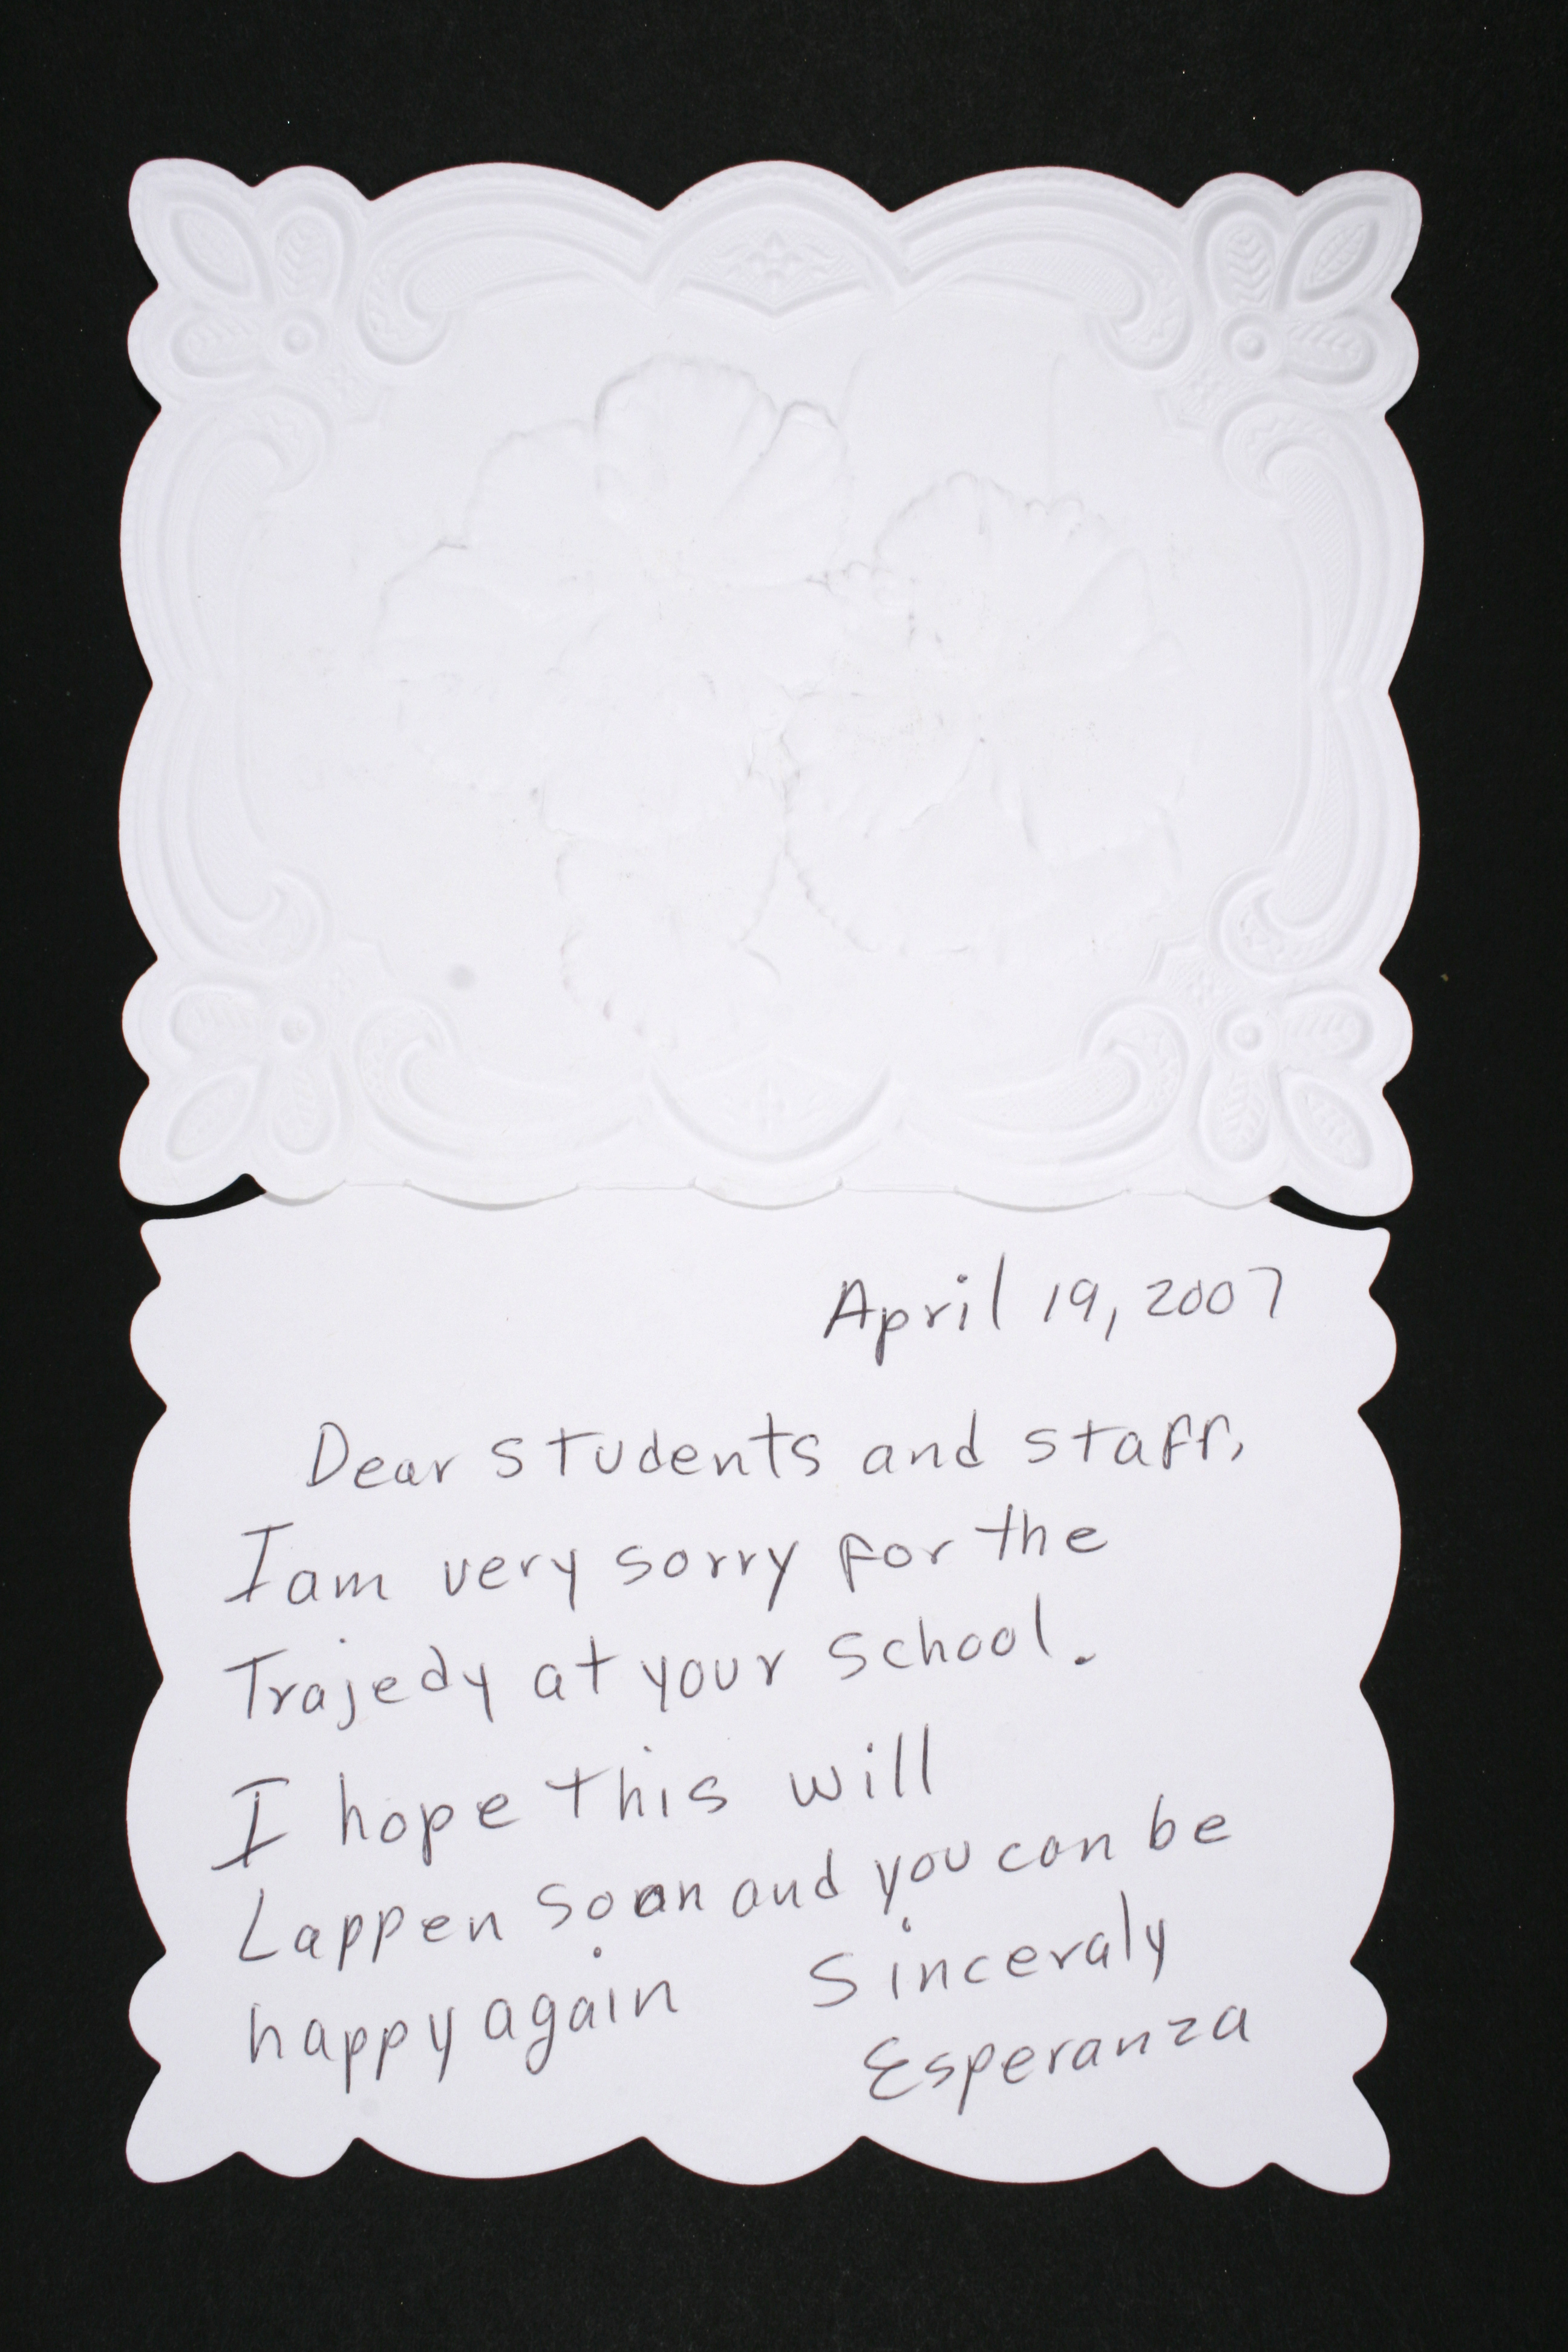 April 19, 2007
Dear students and staff,
I am very sorry for the
Trajedy at your school.
I hope this will
Lappen soon and you can be
happy again Sinceraly
Esperanza